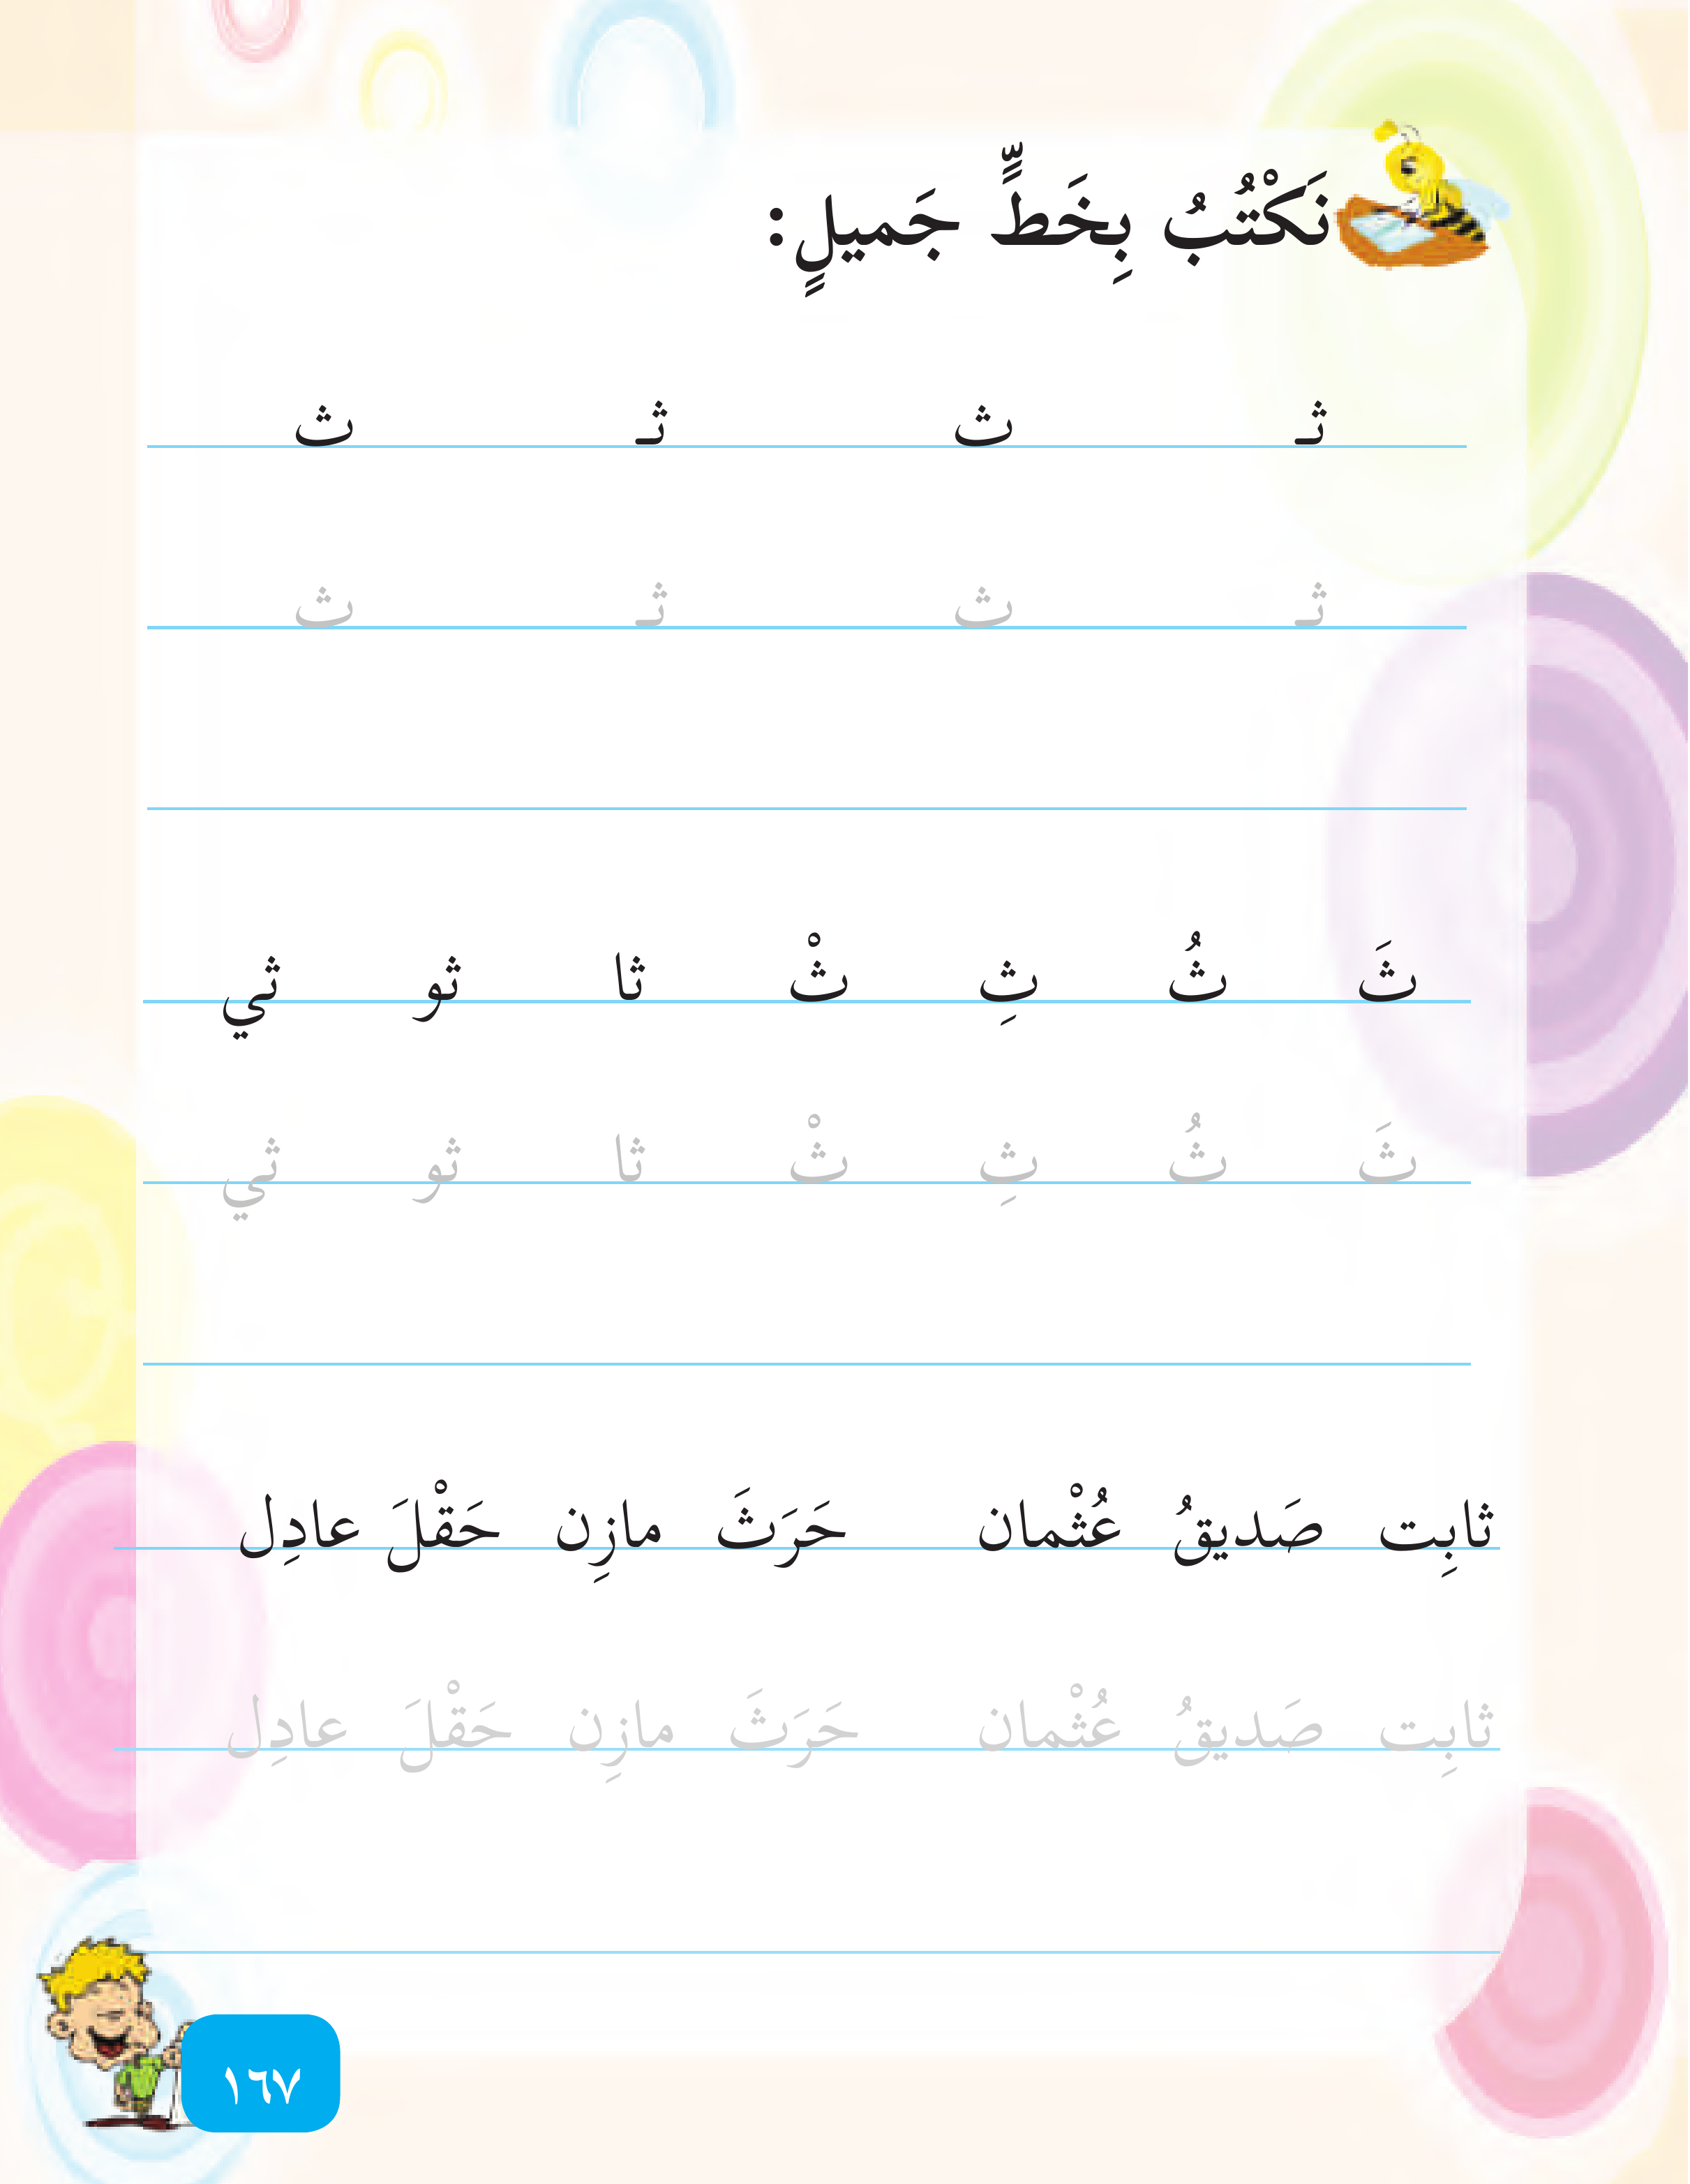 نَكْتُبُ بِخَطٍّ جَميلٍ:
ثـ ث ثـ ث
ثـ ث ثـ ث
ثَ ثُ ثِ ثْ ثا ثو ثي
ثَ ثُ ثِ ثْ ثا ثو ثي
ثابِت صَديقُ عُثْمان حَرَثَ مازِن حَقْلَ عادِل
ثابِت صَديقُ عُثْمان حَرَثَ مازِن حَقْلَ عادِل
١٦٧